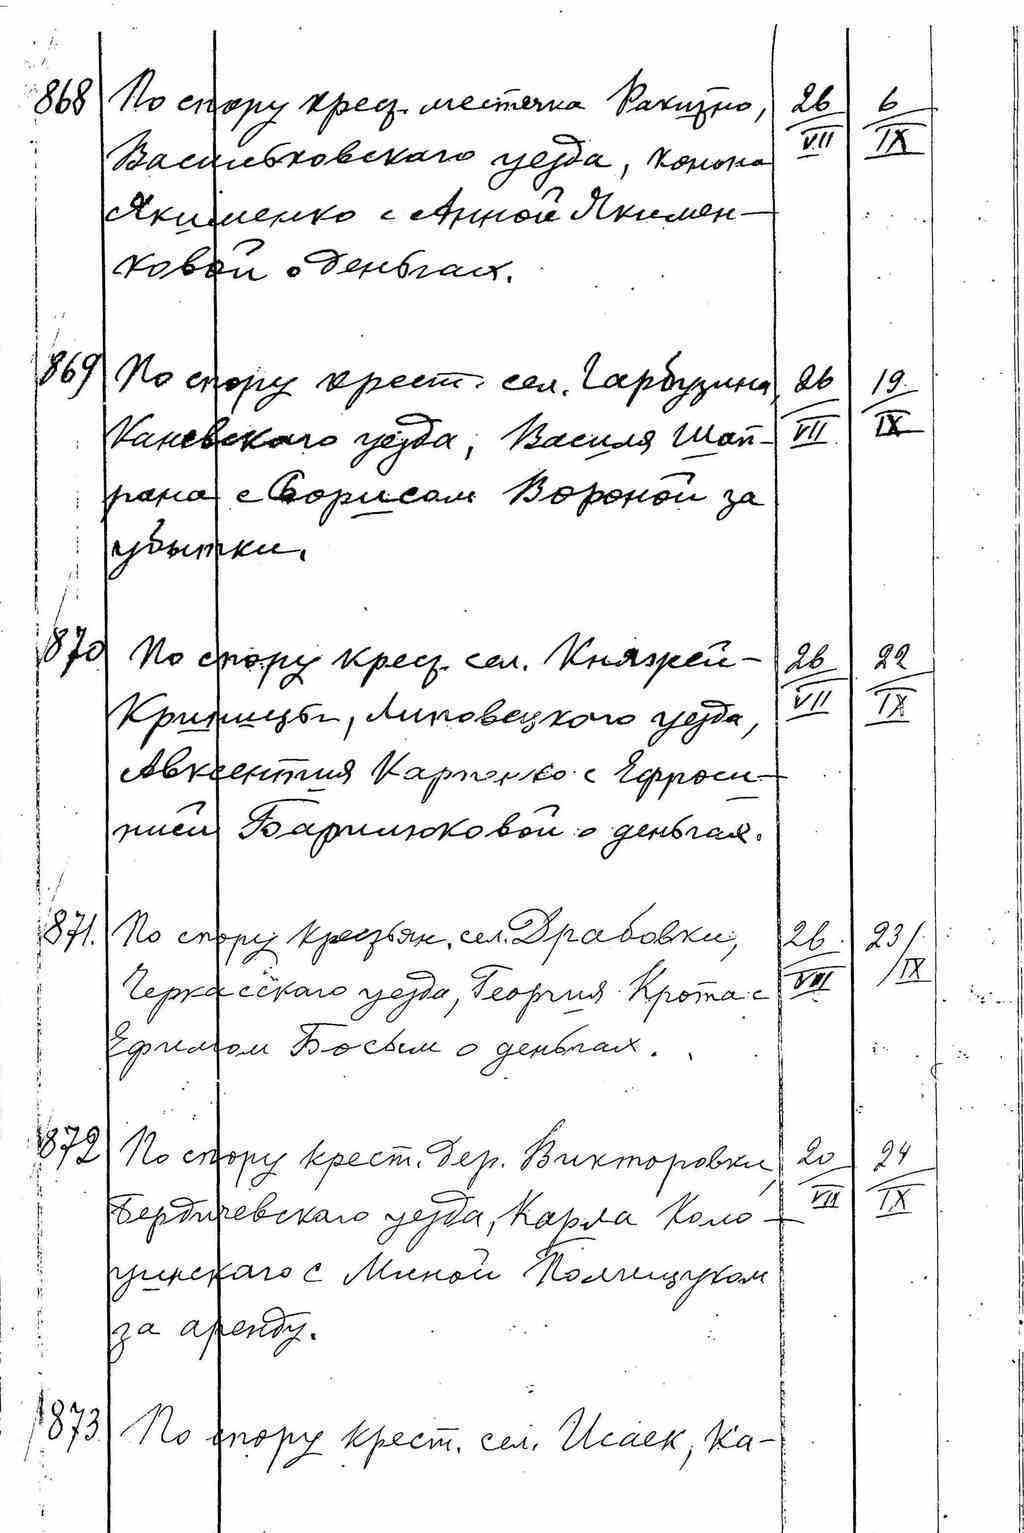 868 По спору крес. местечка Ракитно, 26/VII 6/IX
Васильковскаго уезда, Конона
Якименко с Анной Якимен-
ковой о деньгах.
869 По спору крест. сел. Гарбузина, 26/VII 19/IX
Каневскаго уезда, Василя Шап-
рана с Борисом Вороной за
убытки.
870 По спору крес. сел. Княжей- 26/VII 22/IX
Криницы, Липовецкого уезда,
Авксентия Карпенко с Ефроси-
нией Барилюковой о деньгах.
871. По спору крестьян. сел. Драбовки, 26/VIII 23/IX
Черкасскаго уезда, Георгия Крота с
Ефимом Босым о деньгах.
872 По спору крест. дер. Викторовки, 20/VII 24/IX
Бердичевскаго уезда, Карла Коло-
чинскаго с Миной Полищуком
за аренду.
873 По спору крест. сел. Исаек, Ка-